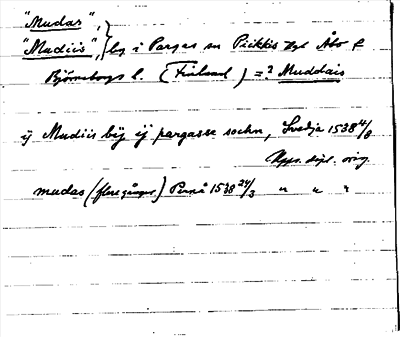 "Mudas",
"Mudiis", } by i Pargas sn Piikkis hd Åbo &
Björneborgs l. (Finland) =? Muddais
ij Mudiis bij ij pargasse sochn, Svedja 1538 4/8
Upps. dipl. orig.
mudas (flere gånger) Pernå 1538 24/3 " " "